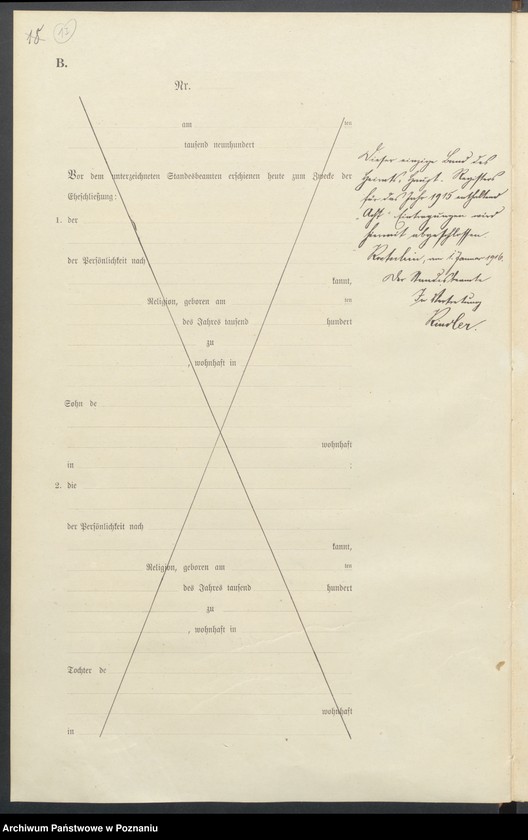 15 17
B.
Nr.
am ten
tausend neunhundert
Vor dem unterzeichneten Standesbeamten erschienen heute zum Zwecke der
Eheschließung:
1. der
der Persönlichkeit nach
kannt,
Religion, geboren am ten
des Jahres tausend hundert
zu
, wohnhaft in
Sohn de
wohnhaft
in ;
2. die
der Persönlichkeit nach
kannt,
Religion, geboren am ten
des Jahres tausend hundert
zu
, wohnhaft in
Tochter de
wohnhaft
in
Dieser einzige Band des
Heirats-Haupt-Registers
für das Jahr 1915 enthaltend
"Acht" Eintragungen wird
hiermit abgeschlossen.
am 1. Januar 1916.
Der Standesbeamte
In Vertretung
Archiwum Państwowe w Poznaniu